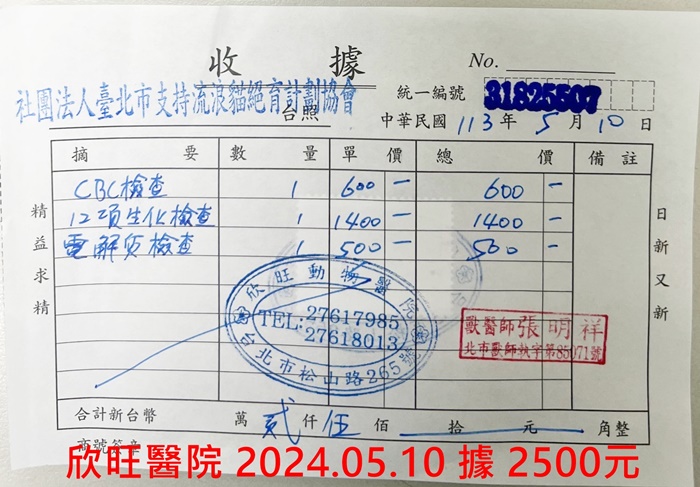 收 據
No.
社團法人臺北市支持流浪貓絕育計劃協會
台照
統一編號 31825507
中華民國 113 年 5 月 10 日
摘 要 數 量 單 價 總 價 備 註
CBC檢查 1 600 一 600 一
12項生化檢查 1 1400 一 1400 一
電解質檢查 1 500 一 500 一
精益求精
日新又新
欣旺動物醫院
TEL:27617985
27618013
台北市松山路265號
獸醫師 張明祥
北市獸師執字第85071號
合計新台幣 萬 貳 仟 伍 佰 拾 元 角整
商號簽章
欣旺醫院 2024.05.10 據 2500元